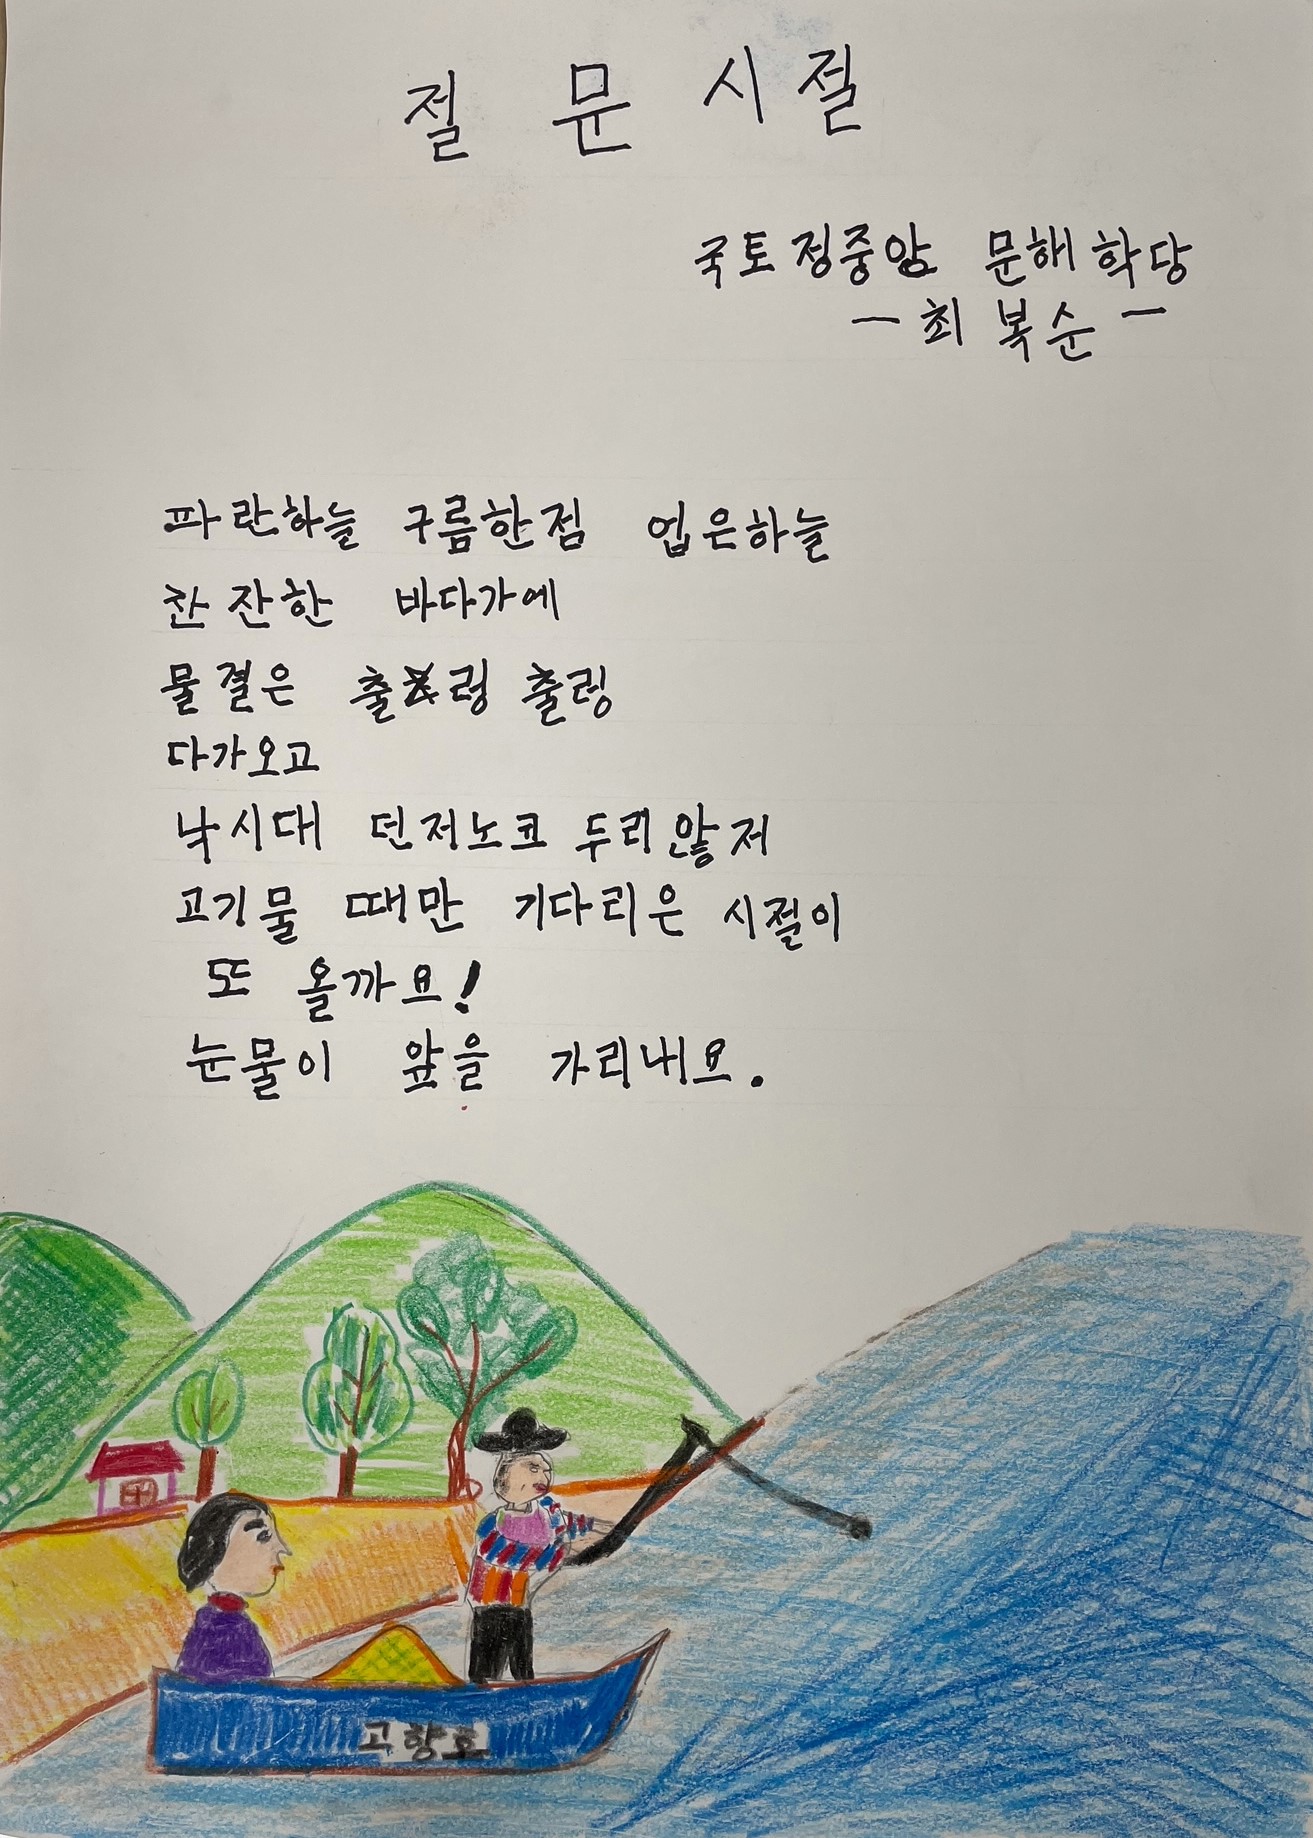 절 문 시절
국토정중앙 문해학당
- 최 복순 -
파란하늘 구름한점 업은하늘
찬잔한 바다가에
물결은 출렁 출렁
다가오고
낙시대 던저노코 두리앟저
고기물 때만 기다리은 시절이
또 올까요!
눈물이 앞을 가리내요.
고향호